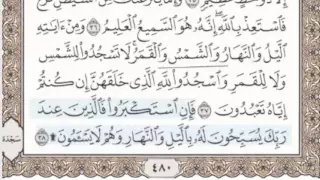 فَٱسۡتَعِذۡ بِٱللَّهِۖ إِنَّهُۥ هُوَ ٱلسَّمِيعُ ٱلۡعَلِيمُ ٣٦ وَمِنۡ ءَايَٰتِهِ
ٱلَّيۡلُ وَٱلنَّهَارُ وَٱلشَّمۡسُ وَٱلۡقَمَرُۚ لَا تَسۡجُدُواْ لِلشَّمۡسِ
وَلَا لِلۡقَمَرِ وَٱسۡجُدُواْۤ لِلَّهِ ٱلَّذِي خَلَقَهُنَّ إِن كُنتُمۡ
إِيَّاهُ تَعۡبُدُونَ ٣٧ فَإِنِ ٱسۡتَكۡبَرُواْ فَٱلَّذِينَ عِندَ
رَبِّكَ يُسَبِّحُونَ لَهُۥ بِٱلَّيۡلِ وَٱلنَّهَارِ وَهُمۡ لَا يَسۡـَٔمُونَ۩ ٣٨
سجدة
٤٨٠